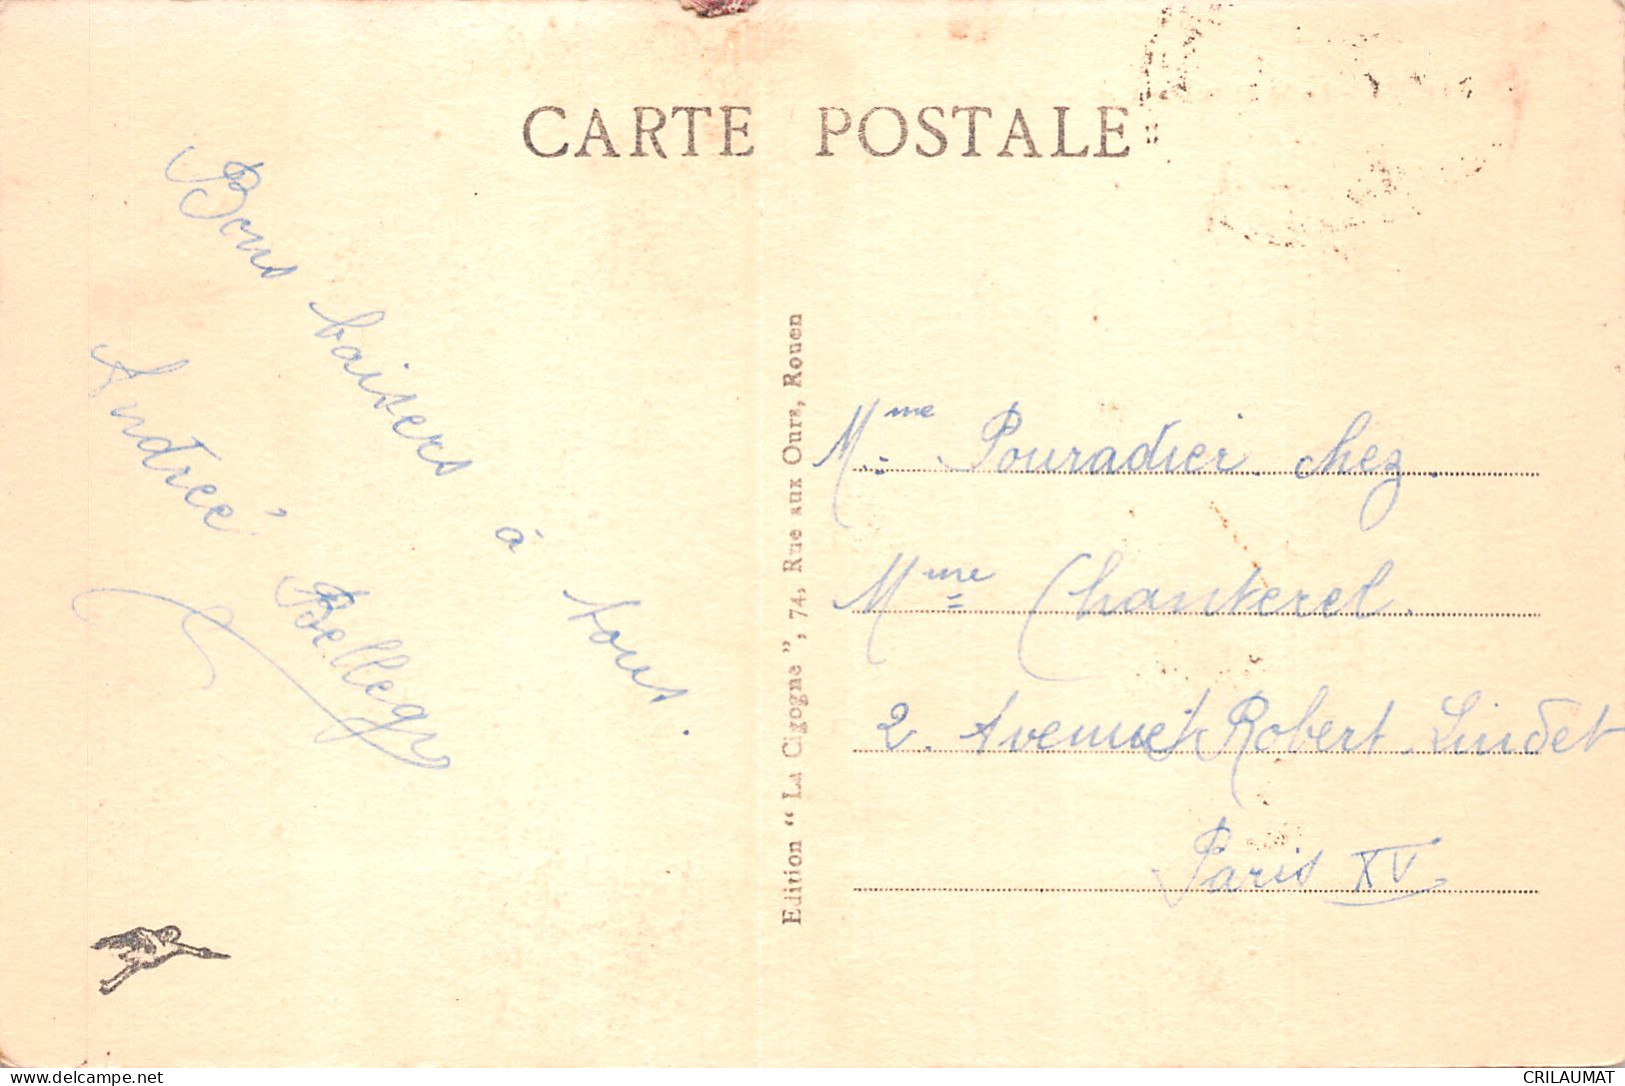 CARTE POSTALE
Bons baisers à tous.
Andréé
Edition “ La Cigogne ”, 74, Rue aux Ours, Rouen
Mme Pouradier chez
Mme Chanterel.
2. Avenue Robert Lindet
Paris XV
CRILAUMAT